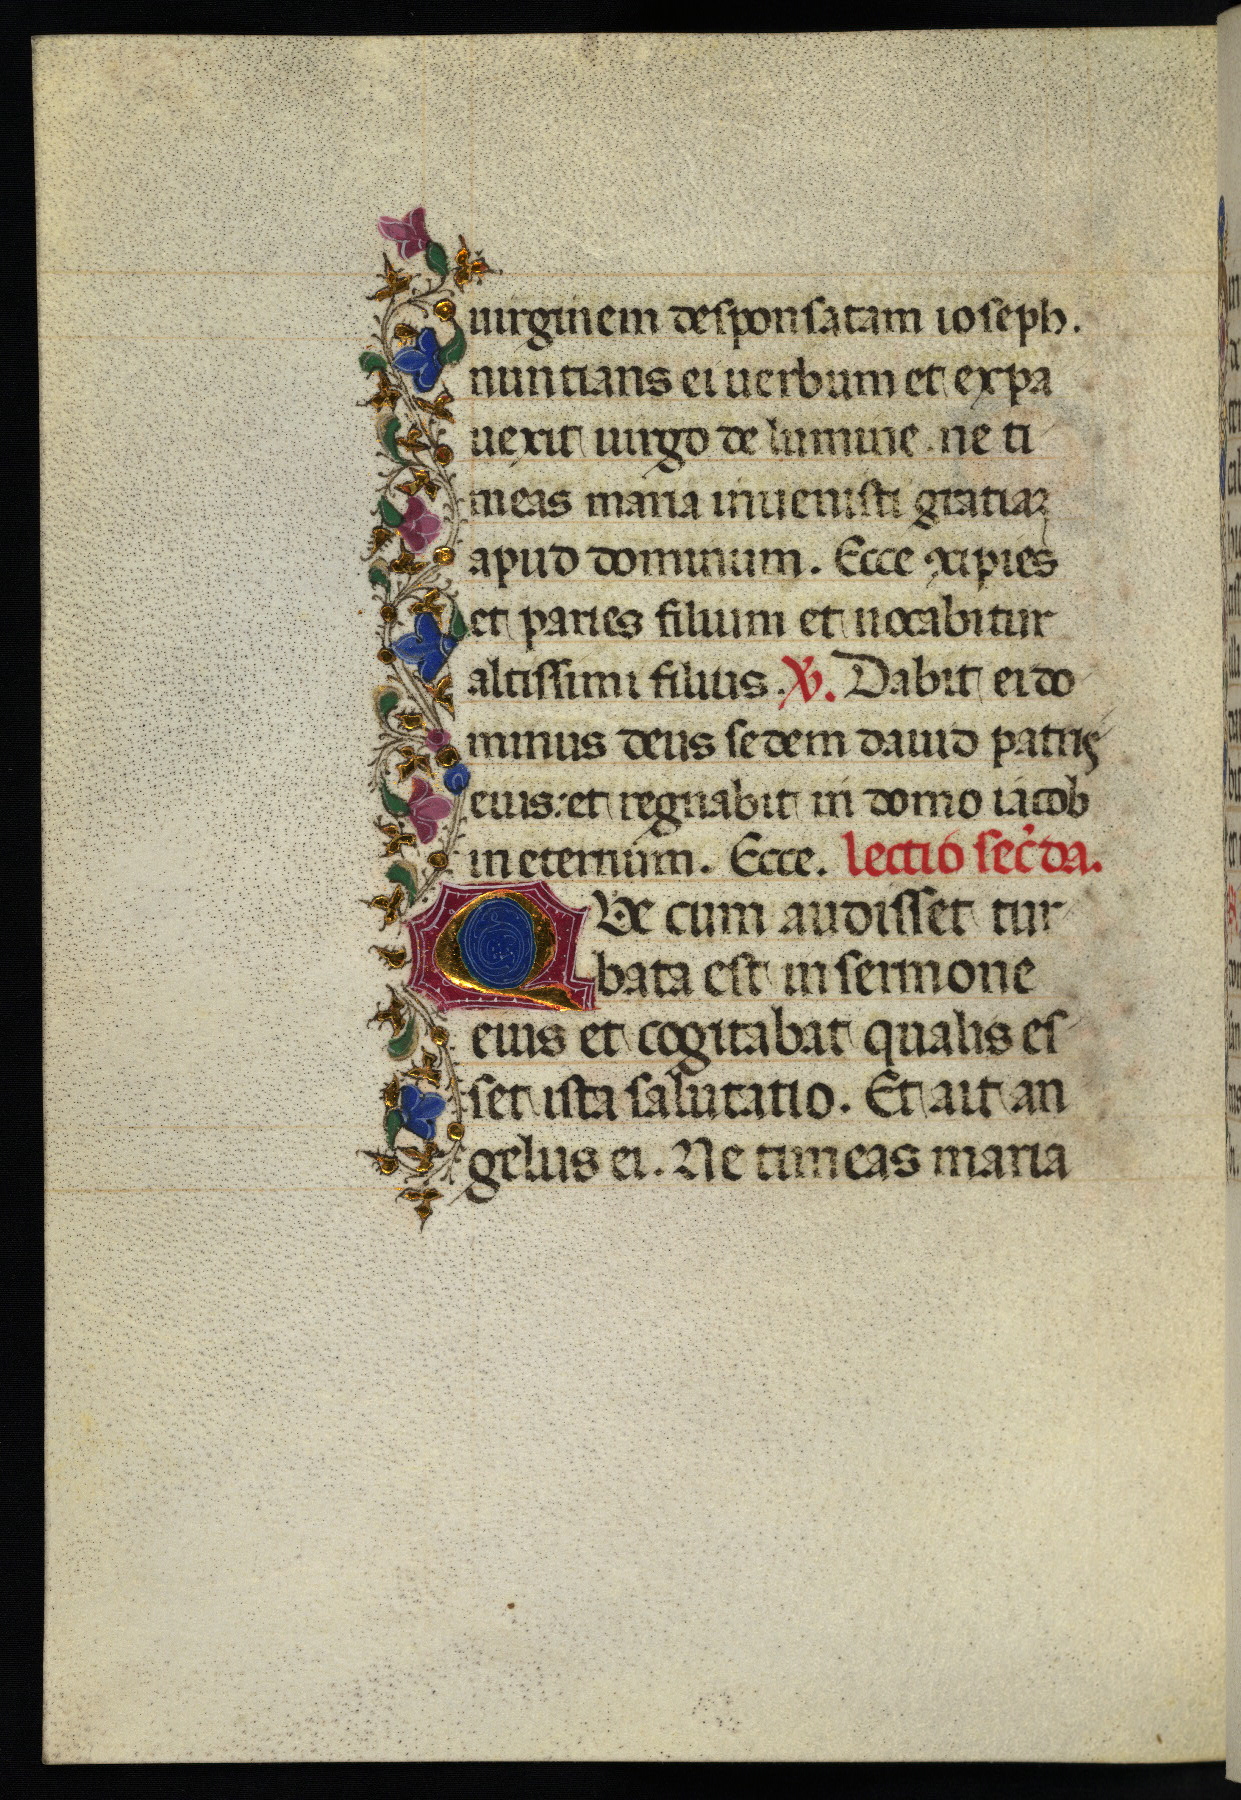 uirginem desponsatam ioseph.
nuntians ei uerbum et expa
uexit uirgo de lumine. ne ti
meas maria inuenisti gratiaꝫ
apud dominum. Ecce ꝯcipies
et paries filium et uocabitur
altissimi filius. ℣. Dabit ei do
minus deus sedem dauid patris
eius: et regnabit in domo iacob
in eternum. Ecce. lectio sec̄da.
Que cum audisset tur
bata est in sermone
eius et cogitabat qualis es
set ista salutatio. Et ait an
gelus ei. Ne timeas maria